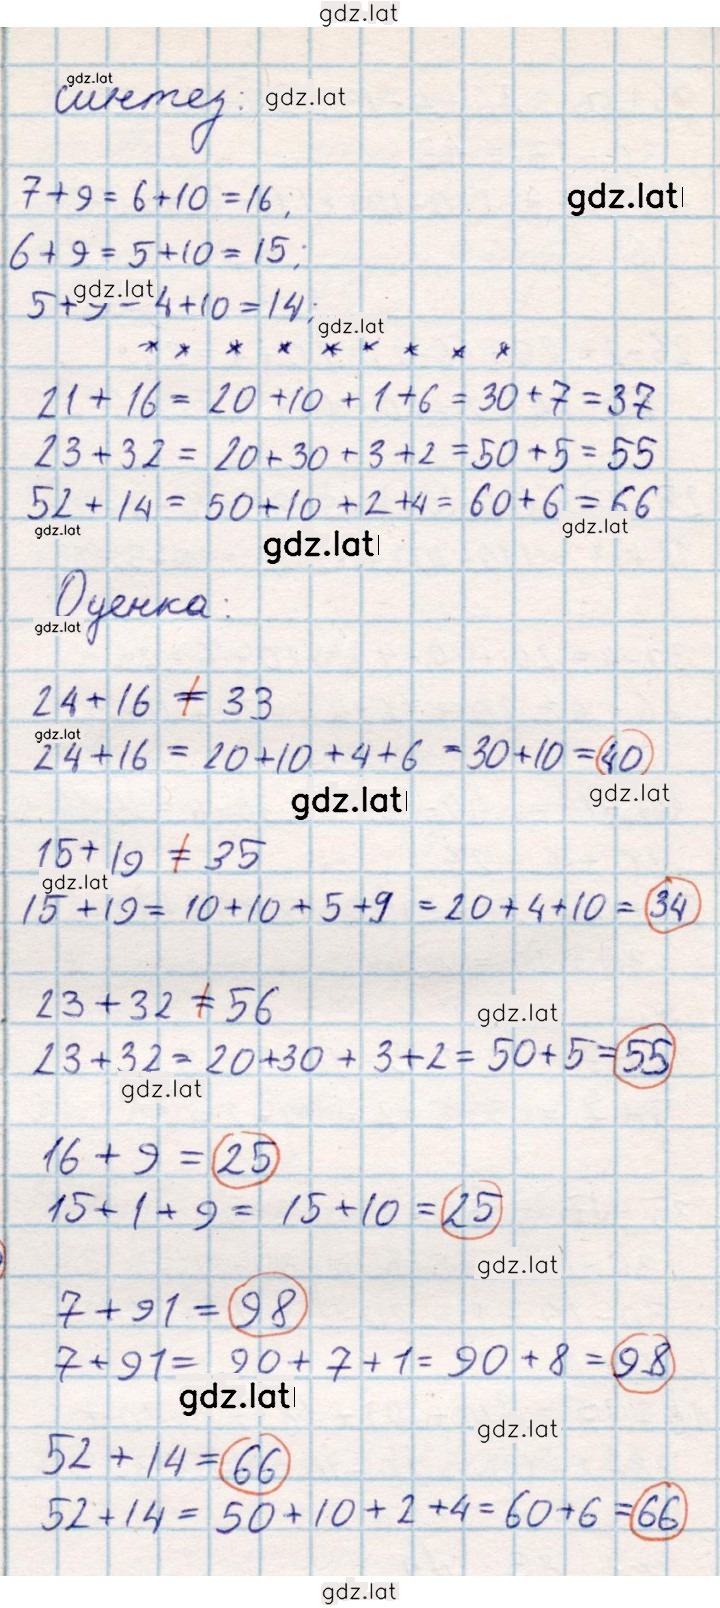 gdz.lat
gdz.lat
синтез: gdz.lat
7+9=6+10=16; gdz.lat
6+9=5+10=15;
gdz.lat
5+9=4+10=14;
gdz.lat
* * * * * * * * *
21+16=20+10+1+6=30+7=37
23+32=20+30+3+2=50+5=55
52+14=50+10+2+4=60+6=66
gdz.lat gdz.lat gdz.lat
Оценка:
gdz.lat
24+16≠33
gdz.lat
24+16=20+10+4+6=30+10=40
gdz.lat gdz.lat
15+19≠35
gdz.lat
15+19=10+10+5+9=20+4+10=34
23+32≠56 gdz.lat
23+32=20+30+3+2=50+5=55
gdz.lat
16+9=25
15+1+9=15+10=25
gdz.lat
7+91=98
7+91=90+7+1=90+8=98
gdz.lat
gdz.lat
52+14=66
52+14=50+10+2+4=60+6=66
gdz.lat